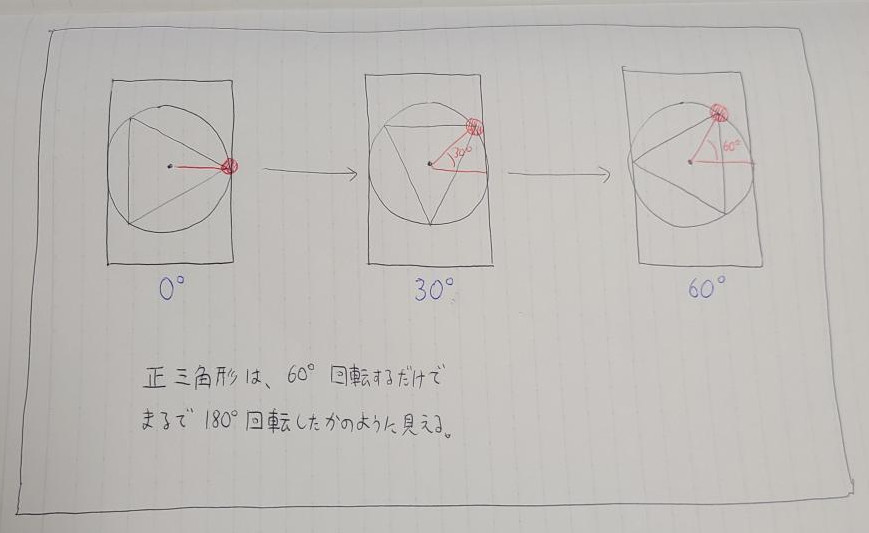 30°
60°
0°
30°
60°
正三角形は、60°回転するだけで
まるで180°回転したかのように見える。